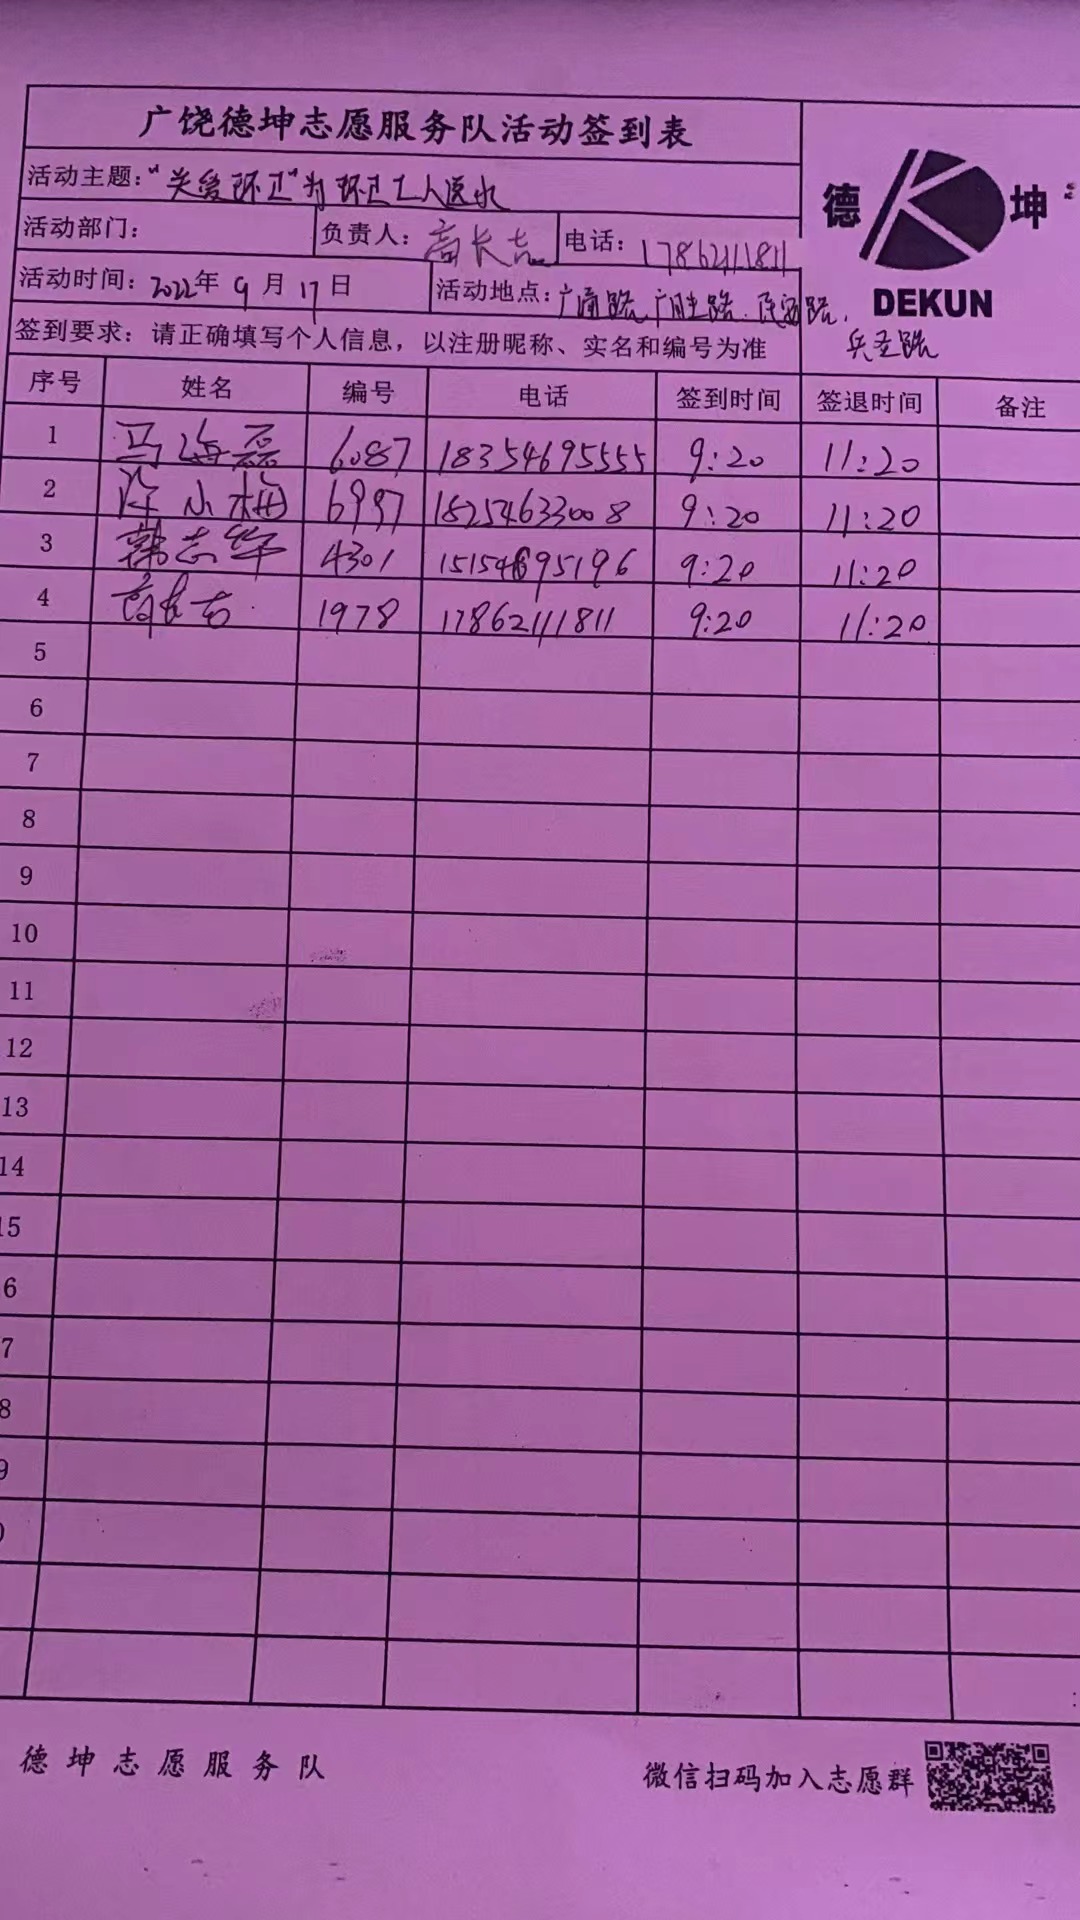 广饶德坤志愿服务队活动签到表
德 坤
DEKUN
活动主题:"关爱环卫"为环卫工人送水
活动部门: 负责人:高长吉 电话:17862111811
活动时间:2022年9月17日 活动地点:广通路、广明路、民安路、
兵圣路
签到要求:请正确填写个人信息,以注册昵称、实名和编号为准
序号 姓名 编号 电话 签到时间 签退时间 备注
1 马海磊 6087 18354695555 9:20 11:20
2 小梅 6997 18254633008 9:20 11:20
3 韩志华 4301 15154695196 9:20 11:20
4 高长吉 1978 17862111811 9:20 11:20
5
6
7
8
9
10
11
12
13
14
15
6
7
8
9
0
德坤志愿服务队
微信扫码加入志愿群